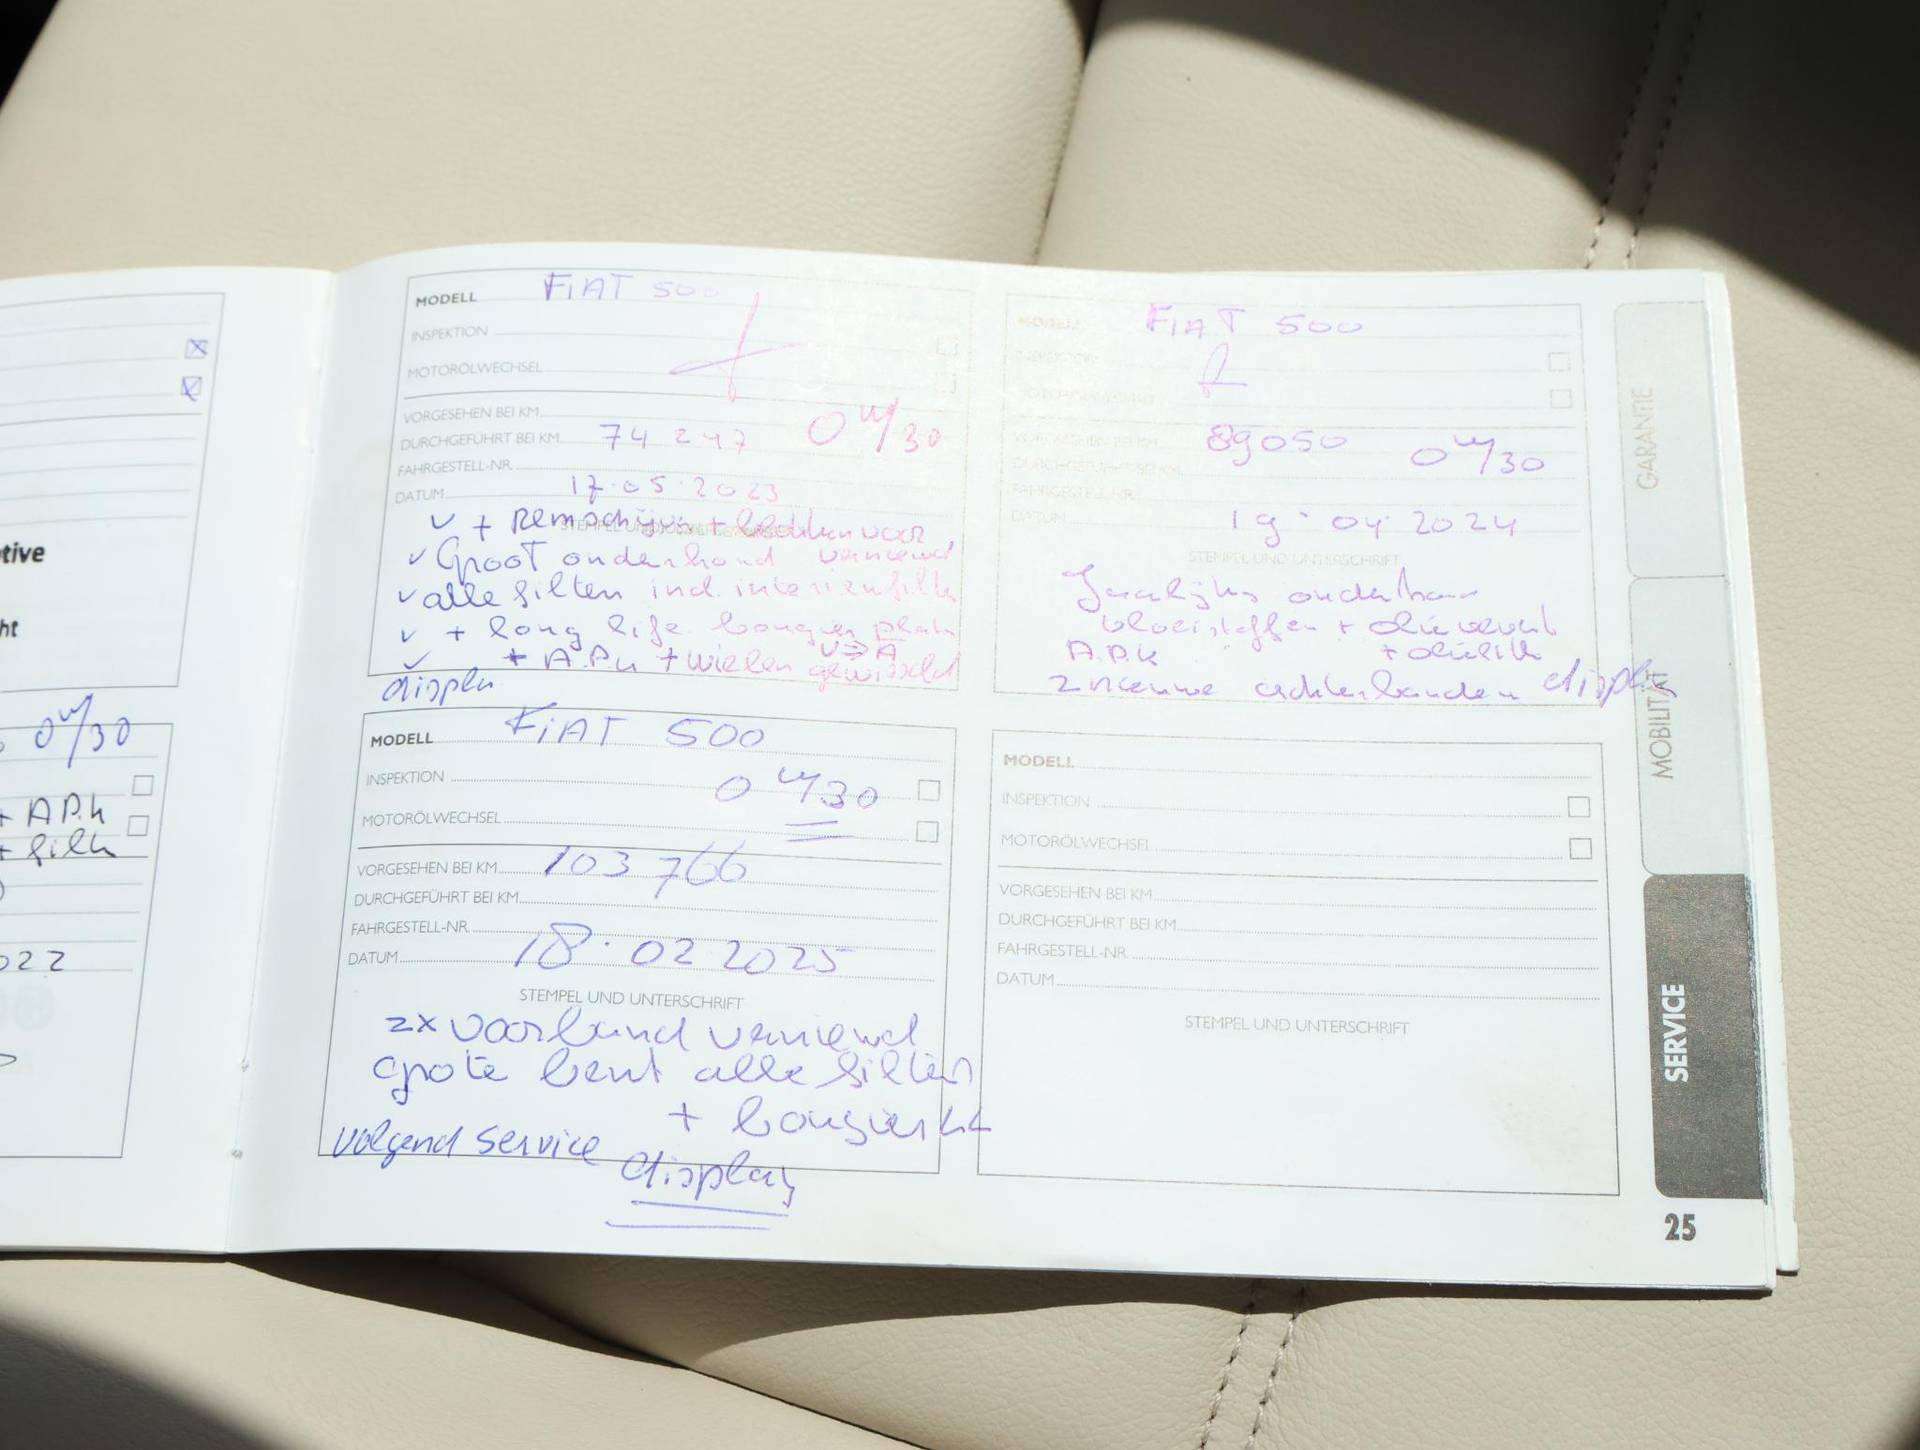 tive
ht
0W/30
+ A.P.K
+ filter
022
MODELL FIAT 500
INSPEKTION
MOTORÖLWECHSEL
VORGESEHEN BEI KM
DURCHGEFÜHRT BEI KM 74 247 0W/30
FAHRGESTELL-NR.
DATUM 17.05.2023
STEMPEL UND UNTERSCHRIFT
✓ + Remschijven + blokken voor
✓ Groot onderhoud vernieuwd
✓ alle filters incl. interieurfilter
✓ + long life bougies
✓ + A.P.K + wielen V⇒A gewisseld
display
MODELL FIAT 500
INSPEKTION
MOTORÖLWECHSEL
VORGESEHEN BEI KM 89050 0W/30
DURCHGEFÜHRT BEI KM
FAHRGESTELL-NR.
DATUM 19-04-2024
STEMPEL UND UNTERSCHRIFT
Jaarlijks onderhoud
vloeistoffen +
A.P.K + oliefilter
2 nieuwe achterbanden display
MODELL FIAT 500
INSPEKTION 0W/30
MOTORÖLWECHSEL
VORGESEHEN BEI KM 103 766
DURCHGEFÜHRT BEI KM
FAHRGESTELL-NR.
DATUM 18.02 2025
STEMPEL UND UNTERSCHRIFT
2x voorband vernieuwd
Grote beurt alle filters
+ bougies
Volgend service display
MODELL
INSPEKTION
MOTORÖLWECHSEL
VORGESEHEN BEI KM
DURCHGEFÜHRT BEI KM
FAHRGESTELL-NR.
DATUM
STEMPEL UND UNTERSCHRIFT
GARANTIE
MOBILITÄT
SERVICE
25